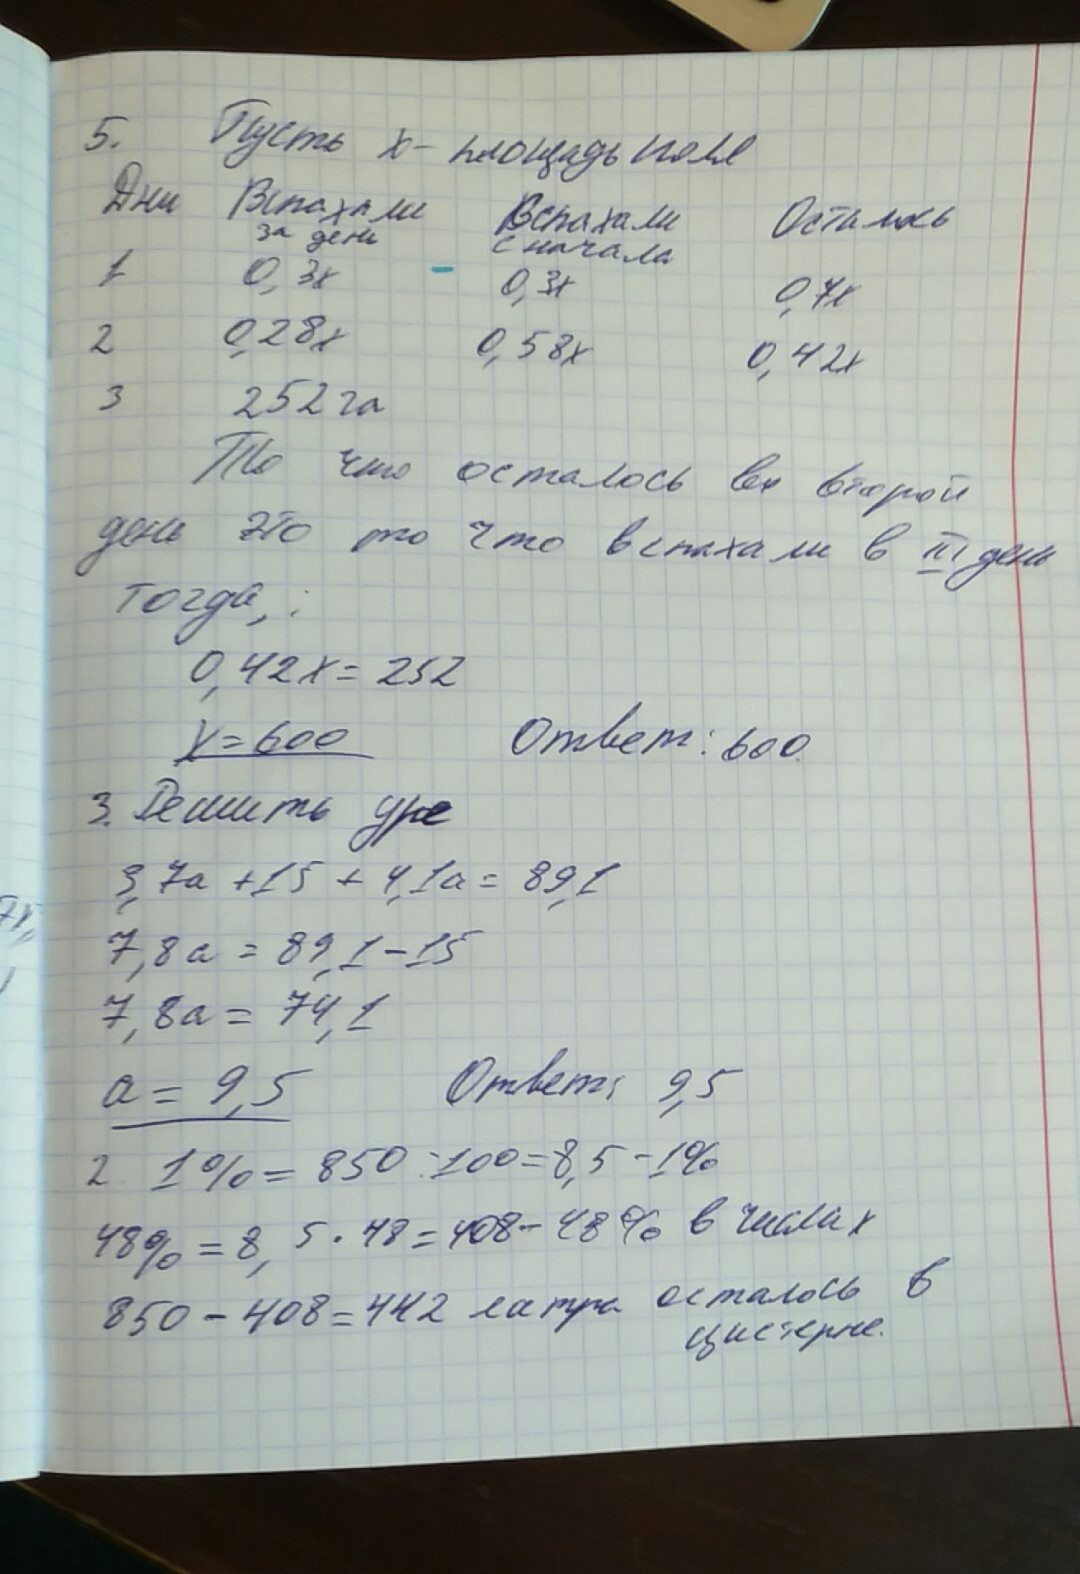 5. Пусть х - площадь поля
Дни Вспахали за день Вспахали с начала Осталось
1 0,3х - 0,3х 0,7х
2 0,28х 0,58х 0,42х
3 252 га
То что осталось во второй
день это то что вспахали в III день
тогда, :
0,42х = 252
х = 600 Ответ: 600.
3. Решить уре
3,7а + 15 + 4,1а = 89,1
7,8а = 89,1 - 15
7,8а = 74,1
а = 9,5 Ответ: 9,5
2. 1% = 850 : 100 = 8,5 - 1%
48% = 8,5 · 48 = 408 - 48% в числах
850 - 408 = 442 литра осталось в
цистерне.